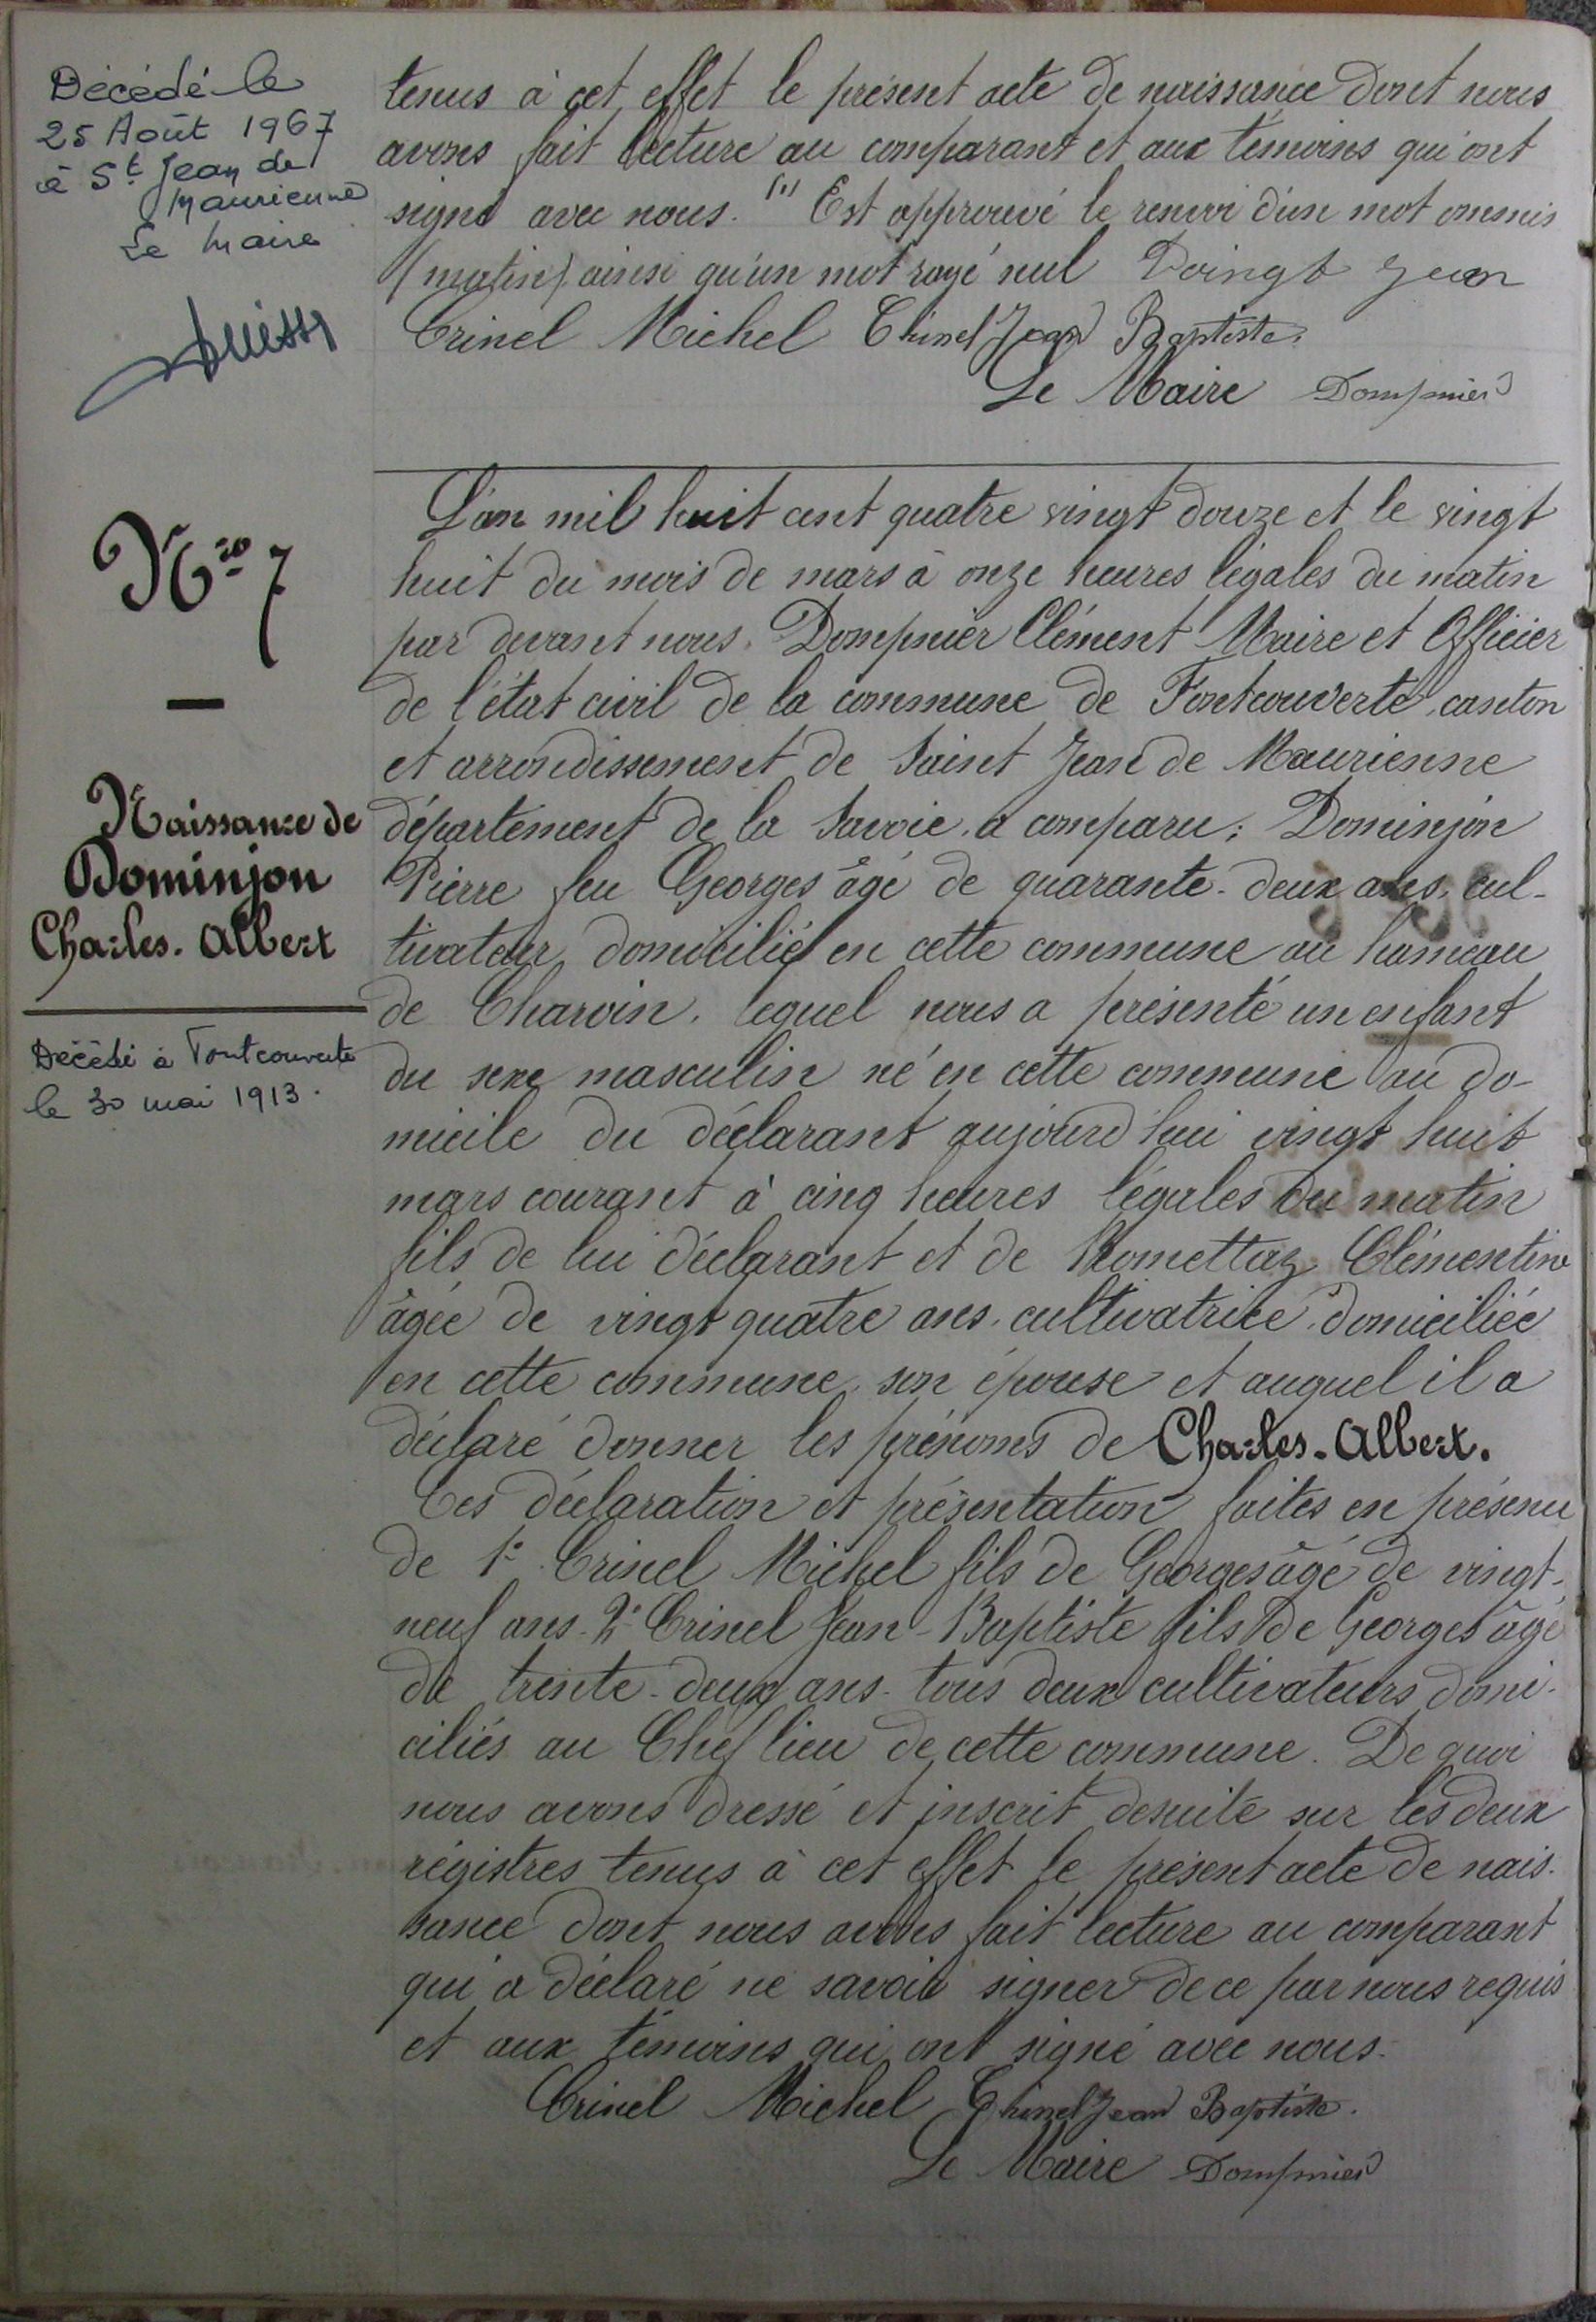 Décédé le
25 Août 1967
à St Jean de
Maurienne
Le Maire
tenus à cet effet le présent acte de naissance dont nous
avons fait lecture au comparant et aux témoins qui ont
signé avec nous. (1) Est approuvé le renvoi d'un mot ommis
(matin) ainsi qu'un mot rayé nul Doingt Jean
Crinel Michel Crinel Jean Baptiste
Le Maire Dompnier
Nro 7
Naissance de
Dominjon
Charles-Albert
Décédé à Fontcouverte
le 30 mai 1913.
L'an mil huit cent quatre vingt douze et le vingt
huit du mois de mars à onze heures légales du matin
par devant nous. Dompnier Clément Maire et Officier
de l'état civil de la commune de Fontcouverte, canton
et arrondissement de Saint Jean de Maurienne
département de la Savoie. a comparu: Dominjon
Pierre feu Georges âgé de quarante-deux ans, cul-
tivateur domicilié en cette commune au hameau
de Charvin. lequel nous a présenté un enfant
du sexe masculin né en cette commune au do-
micile du déclarant aujourd'hui vingt huit
mars courant à cinq heures légales du matin
fils de lui déclarant et de Romettaz Clémentine
âgée de vingt quatre ans. cultivatrice. domiciliée
en cette commune, son épouse et auquel il a
déclaré donner les prénoms de Charles-Albert.
Ces déclaration et présentation faites en présence
de 1° Crinel Michel fils de Georges âgé de vingt-
neuf ans. 2° Crinel Jean-Baptiste fils de Georges âgé
de trente-deux ans. tous deux cultivateurs domi-
ciliés au Chef lieu de cette commune. De quoi
nous avons dressé et inscrit desuite sur les deux
régistres tenus à cet effet le présent acte de nais-
sance dont nous avons fait lecture au comparant
qui a déclaré ne savoir signer de ce par nous requis
et aux témoins qui ont signé avec nous.
Crinel Michel Crinel Jean Baptiste.
Le Maire Dompnier